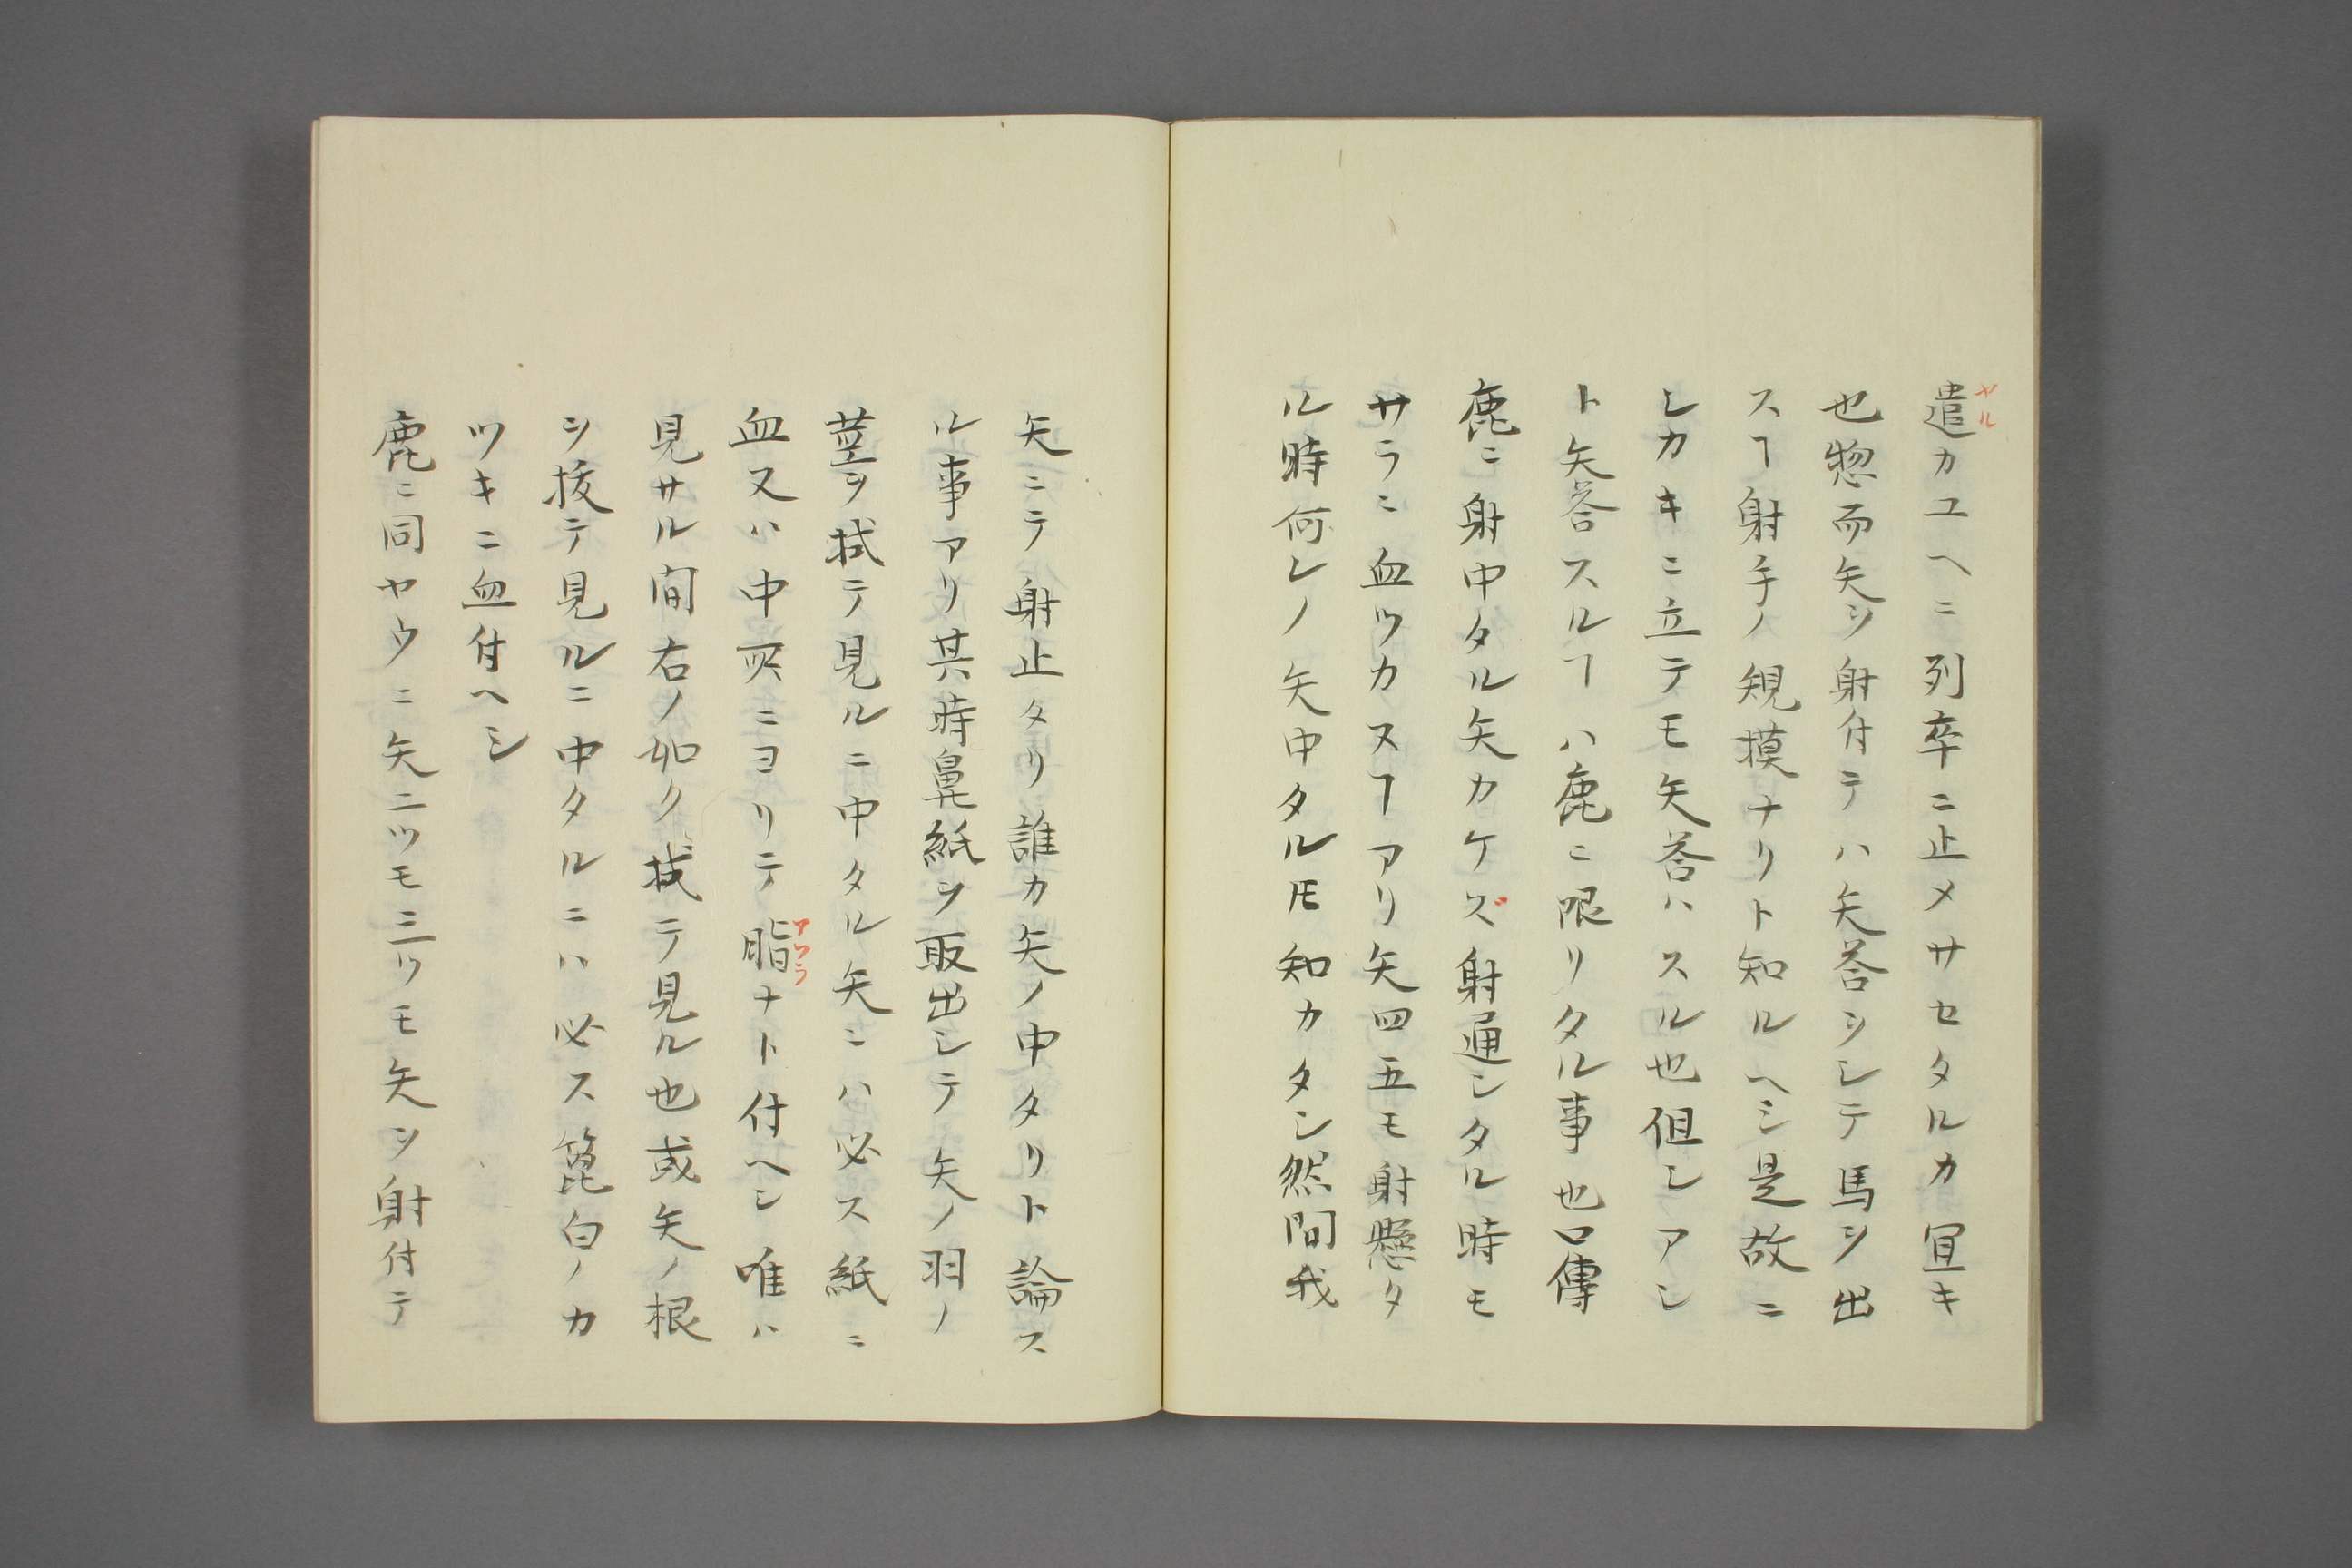 遣カユヘニ列卒ニ止メサセタルカ宜キ
ヤル
也惣而矢ヲ射付テハ矢荅ヲシテ馬ヲ出
スヿ射手ノ規摸ナリト知ルヘシ是故ニ
シカキニ立テモ矢荅ハスル也但シアシ
ト矢荅スルヿハ鹿ニ限リタル事也口傳
鹿ニ射中タル矢カケズ射通シタル時モ
サラニ血ツカヌヿアリ矢四五モ射懸タ
ル時何レノ矢中タル𪜈知カタシ然間我
矢ニテ射止タリ誰カ矢ノ中タリト論ス
ル事アリ其時鼻紙ヲ取出シテ矢ノ羽ノ
莖ヲ拭テ見ルニ中タル矢ニハ必ス紙ニ
血又ハ中所ニヨリテ脂ナト付ヘシ唯ハ
アフラ
見サル間右ノ如ク拭テ見ル也或矢ノ根
ヲ拔テ見ルニ中タルニハ必ス篦白ノカ
ツキニ血付ヘシ
鹿ニ同ヤウニ矢二ツモ三ツモ矢ヲ射付テ